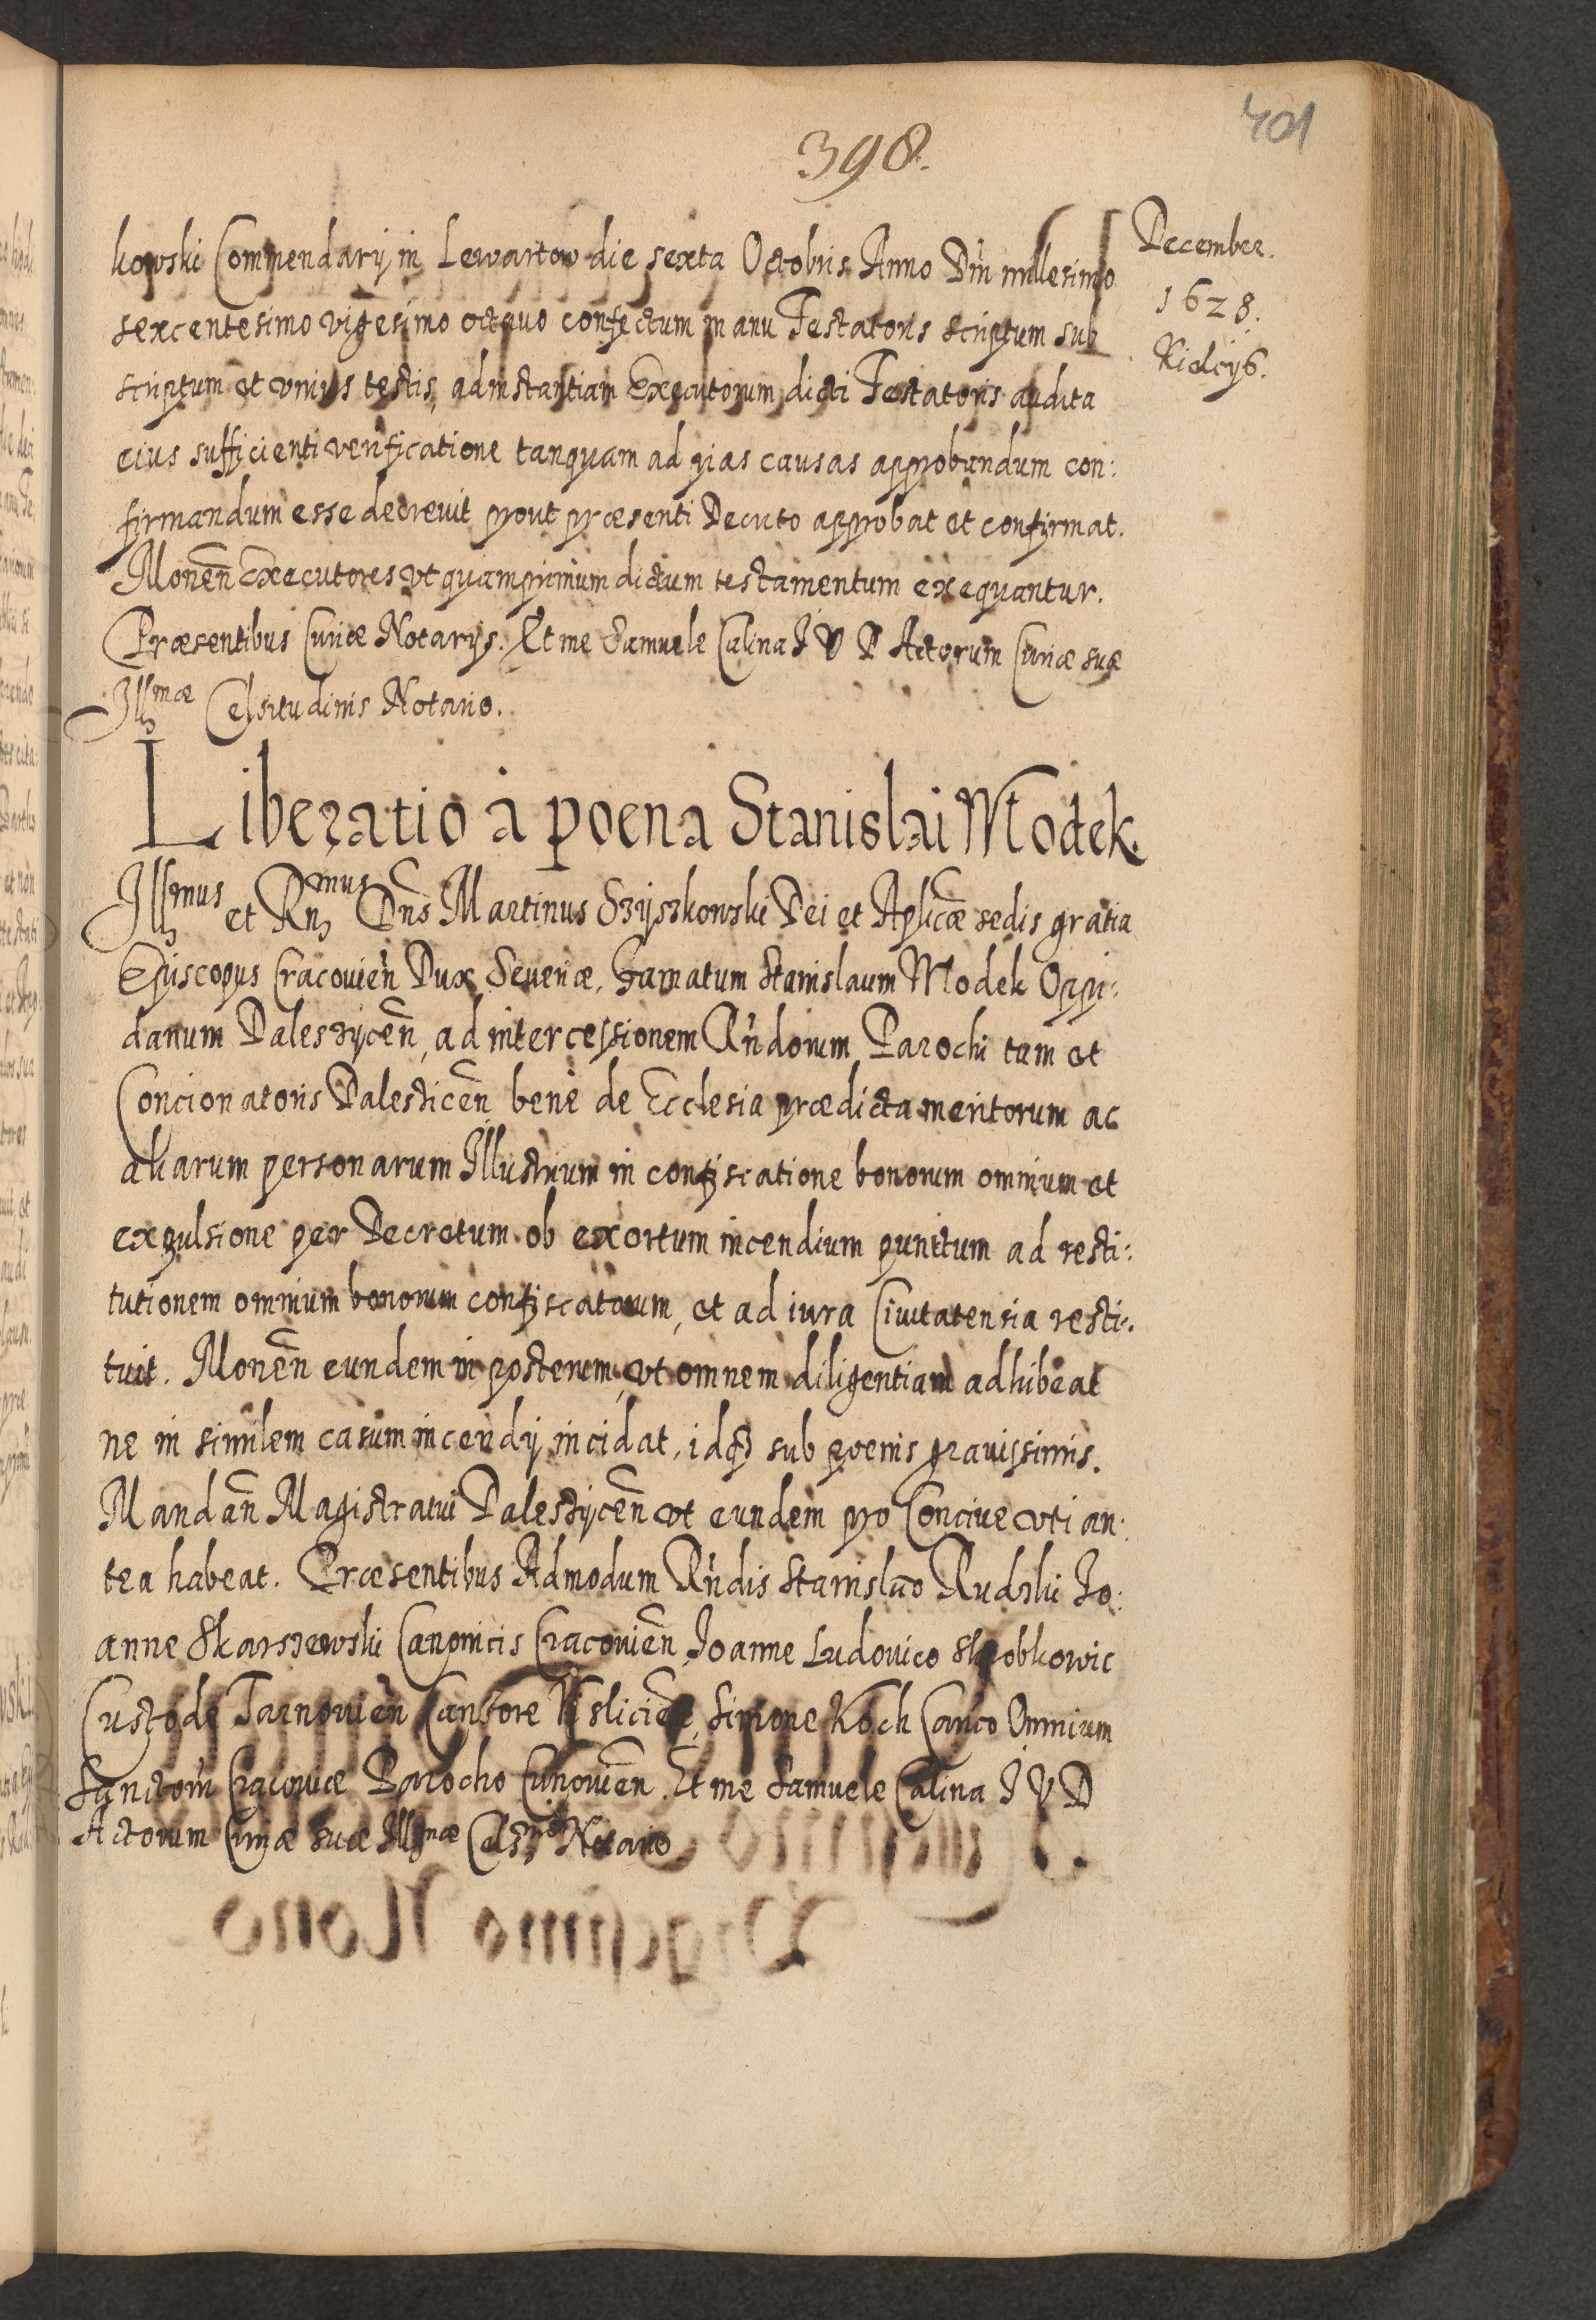 401
398.
December.
1628.
Kielcijs.
kowski Commendarij in Lewartow die sexta Octobris Anno Dni millesimo
sexcentesimo vigesimo octauo confectum manu Testatoris scriptum sub
scriptum et vnius testis, ad instantiam Executorum dicti Testatoris audita
eius sufficienti verificatione tanquam ad pias causas approbandum con:
firmandum esse decreuit prout præsenti Decreto approbat et confirmat.
Monen Executores vt quamprimum dictum testamentum exequantur.
Præsentibus Curiæ Notarijs. Et me Samuele Calina J V D Actorum Curiæ suæ
Illmæ Celsitudinis Notario.
Liberatio à poena Stanislai Modek.
Illmus et Rnmus Dns Martinus Szyszkowski Dei et Aplicæ sedis gratia
Episcopus Cracouien Dux Seueriæ, Famatum Stanislaum Modek Oppi:
danum Daleszÿcen, ad intercessionem Rndorum Parochi tum et
Concionatoris Dalesticen bene de Ecclesia prædicta meritorum ac
aliarum personarum Illustrium in confiscatione bonorum omnium et
expulsione per Decretum ob exortum incendium punitum ad resti:
tutionem omnium bonorum confiscatorum, et ad iura Ciuitatensia resti:
tuit. Monen eundem in posterum, vt omnem diligentiam adhibeat
ne in similem casum incendij incidat, idq3 sub poenis grauissimis.
Mandan Magistratui Dalestÿcen vt eundem pro Conciue vti an:
tea habeat. Præsentibus Admodum Rndis Stanislao Rudzki Jo:
anne Skarszewski Canonicis Cracouien, Joanne Ludouico Skrobkowic
Custode Tarnouien Cantore Vislicien, Simone Koch Canco Omnium
Sanctom Cracouiæ Parocho Cunouien. Et me Samuele Calina J V D
Actorum Curiæ suæ Illmæ Notario